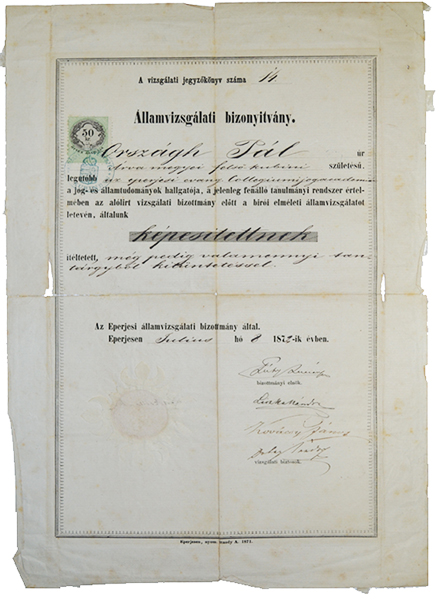 A vizsgálati jegyzőkönyv száma 14
Államvizsgálati bizonyitvány.
50
Országh Pál úr
Árva megyei felső kubini születésű,
legutóbb az eperjesi evang Collegiumi jogakademián
a jog- és államtudományok hallgatója, a jelenleg fenálló tanulmányi rendszer értel-
mében az alólirt vizsgálati bizottmány előtt a birói elméleti államvizsgálatot
letevén, általunk
képesitettnek
itéltetett, még pedig valamennyi tan-
tárgyból kitüntetéssel.
Az Eperjesi államvizsgálati bizottmány által.
Eperjesen Julius hó 187 -ik évben.
bizottmányi elnök.
Kovácsy János
vizsgálati biztosok.
Eperjesen, nyom. A. 1871.